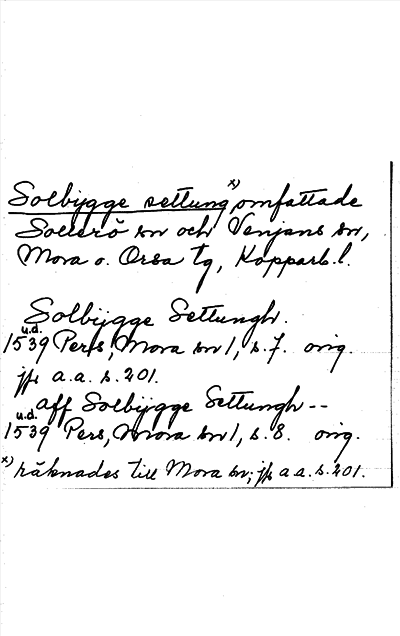 Solbygge settung x) omfattade
Sollerö sn och Venjans sn,
Mora o. Orsa tg, Kopparb. l.
Solbijgge Settungh.
u.d.
1539 Pers, Mora sn 1, s. 7. orig.
jfr a.a. s. 201.
aff Solbijgge Settungh --
u.d.
1539 Pers, Mora sn 1, s. 8. orig.
x) räknades till Mora sn; jfr a.a. s. 201.